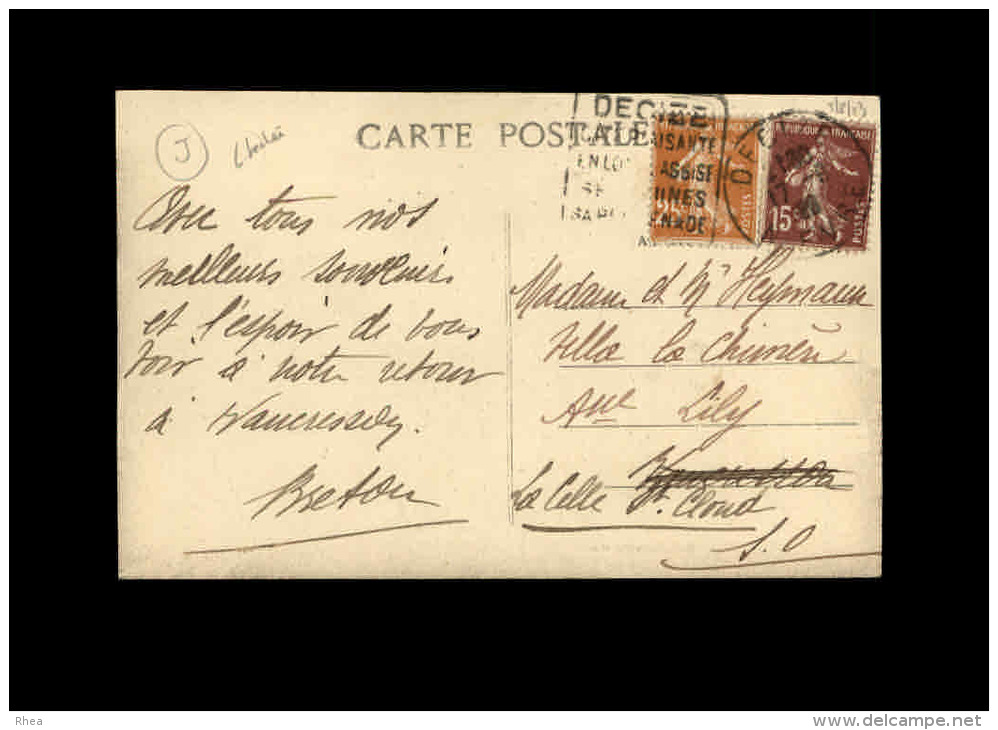 CARTE POSTALE
J
DECIZE
EN LO
ASSISE
SE
MINES
REPUBLIQUE FRANÇAISE
15
POSTES
POSTES
Avec tous nos
meilleurs souvenirs
et l'espoir de vous
voir à notre retour
à Vaucresson.
Breton
Madame et Mr Heymann
Villa la Chimère
Aue Lily
La Celle St. Cloud
S.O
Rhea
www.delcampe.net